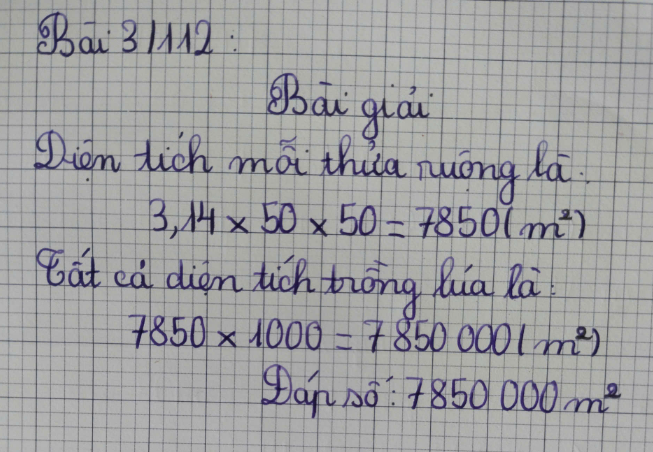 Bài 3/112:
Bài giải
Diện tích mỗi thửa ruộng là:
3,14 × 50 × 50 = 7850 (m²)
Tất cả diện tích trồng lúa là:
7850 × 1000 = 7 850 000 (m²)
Đáp số: 7850 000 m²